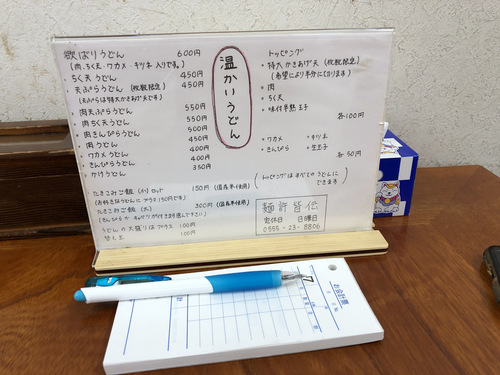 欲ばりうどん 600円
(肉、ちく天・ワカメ・キツネ 入りです。)
・ちく天うどん 450円
・天ぷらうどん (枚数限定) 450円
(天ぷらは特大かきあげ天です)
・肉天ぷらうどん 550円
・肉ちく天うどん 550円
・肉きんぴらうどん 500円
・肉うどん 450円
・ワカメうどん 400円
・きんぴらうどん 400円
・かけうどん 350
たきこみご飯 (小) 150円 (国産米使用)
(お好きなうどんに プラス 150円です)
たきこみご飯 (大) 300円 (国産米使用)
うどんの大盛りは プラス 100円
替え玉 100円
温かいうどん
・トッピング
・特大かきあげ天 (枚数限定)
(希望により半分になります)
・肉
・ちく天
・味付半熟玉子
各100円
・ワカメ ・キツネ
・きんぴら ・生玉子
各50円
(トッピングはすべてのうどんに
できます)
麺許皆伝
定休日 日曜日
0555-23-8806
お会計票